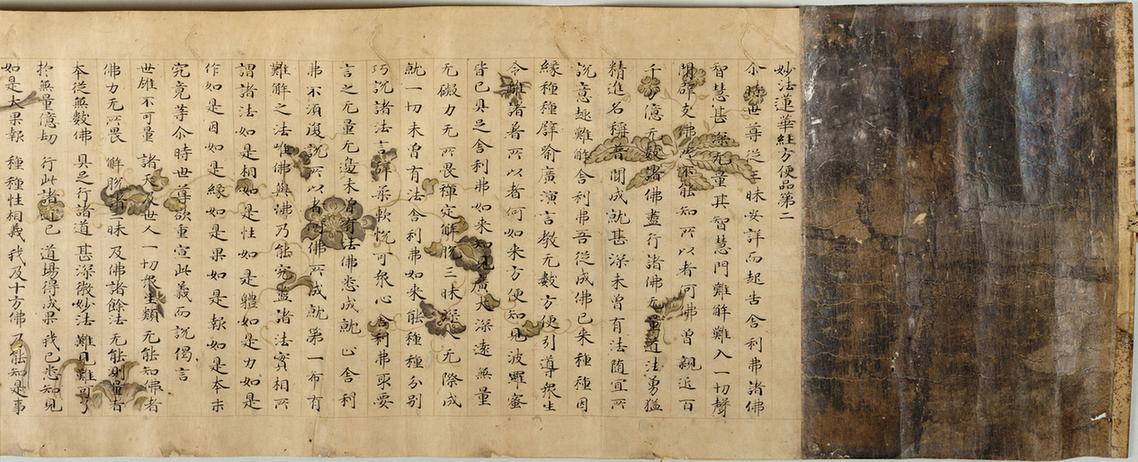 妙法蓮華經方便品第二
尒時世尊從三昧安詳而起告舍利弗諸佛
智慧甚深无量其智慧門難解難入一切聲
聞辟支佛所不能知所以者何佛曾親近百
千万億无數諸佛盡行諸佛无量道法勇猛
精進名稱普聞成就甚深未曾有法隨宜所
說意趣難解舍利弗吾從成佛已來種種因
緣種種譬喻廣演言教无數方便引導衆生
令離諸著所以者何如來方便知見波羅蜜
皆已具足舍利弗如來知見廣大深遠無量
无礙力无所畏禪定解脫三昧深入无際成
就一切未曾有法舍利弗如來能種種分別
巧說諸法言辭柔軟悅可衆心舍利弗取要
言之无量无邊未曾有法佛悉成就止舍利
弗不須復說所以者何佛所成就第一希有
難解之法唯佛與佛乃能究盡諸法實相所
謂諸法如是相如是性如是體如是力如是
作如是因如是緣如是果如是報如是本末
究竟等尒時世尊欲重宣此義而說偈言
世雄不可量 諸天及世人 一切衆生類 无能知佛者
佛力无所畏 解脫諸三昧 及佛諸餘法 无能測量者
本從無數佛 具足行諸道 甚深微妙法 難見難可了
於無量億劫 行此諸道已 道場得成果 我已悉知見
如是大果報 種種性相義 我及十方佛 乃能知是事